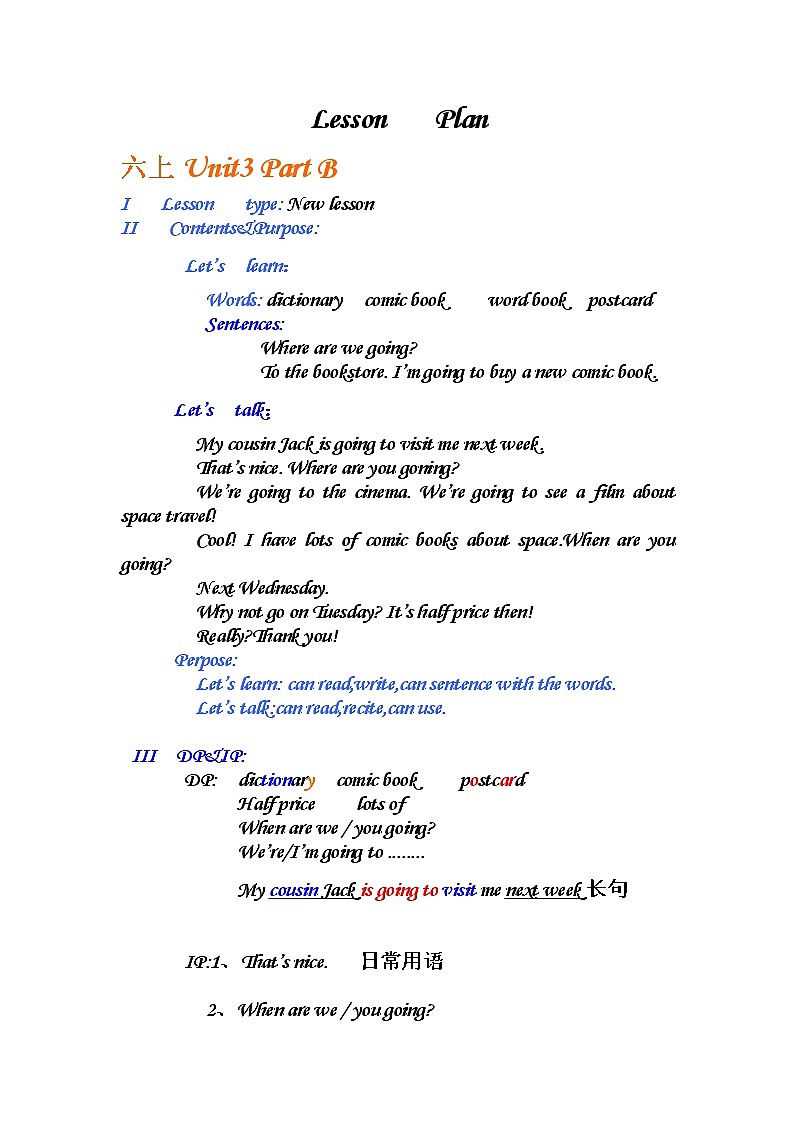 Lesson Plan
六上 Unit3 Part B
I Lesson type: New lesson
II Contents&Purpose:
Let's learn:
Words: dictionary comic book word book postcard
Sentences:
Where are we going?
To the bookstore. I'm going to buy a new comic book.
Let's talk:
My cousin Jack is going to visit me next week.
That's nice. Where are you goning?
We're going to the cinema. We're going to see a film about
space travel!
Cool! I have lots of comic books about space.When are you
going?
Next Wednesday.
Why not go on Tuesday? It's half price then!
Really?Thank you!
Perpose:
Let's learn: can read,write,can sentence with the words.
Let's talk:can read,recite,can use.
III DP&IP:
DP: dictionary comic book postcard
Half price lots of
When are we / you going?
We're/I'm going to ........
My cousin Jack is going to visit me next week 长句
IP:1、That's nice. 日常用语
2、When are we / you going?